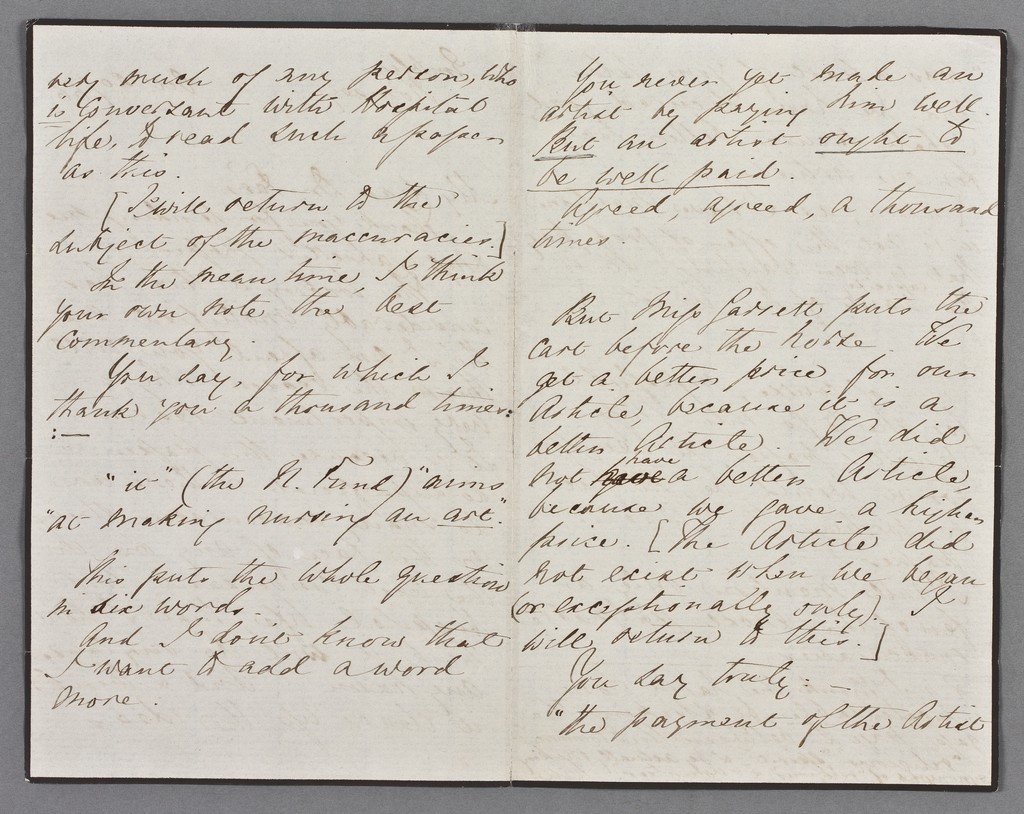 very much of any person, who
is conversant with Hospital
life, to read such a paper
as this.
[I will return to the
subject of the inaccuracies.]
In the mean time, I think
your own note the best
Commentary.
You say, for which I
thank you a thousand times:
:—
"it" (the N. Fund) "aims
"at making nursing an art."
This puts the whole question
in six words.
And I don't know that
I want to add a word
more.
You never yet made an
artist by paying him well.
But an artist ought to
be well paid.
Agreed, agreed, a thousand
times.
But Miss Garrett puts the
cart before the horse. We
get a better price for our
Article, because it is a
better Article. We did
not have a better Article,
because we gave a higher
price. [The Article did
not exist when we began
(or exceptionally only). I
will return to this.]
You say truly: —
"the payment of the Artist